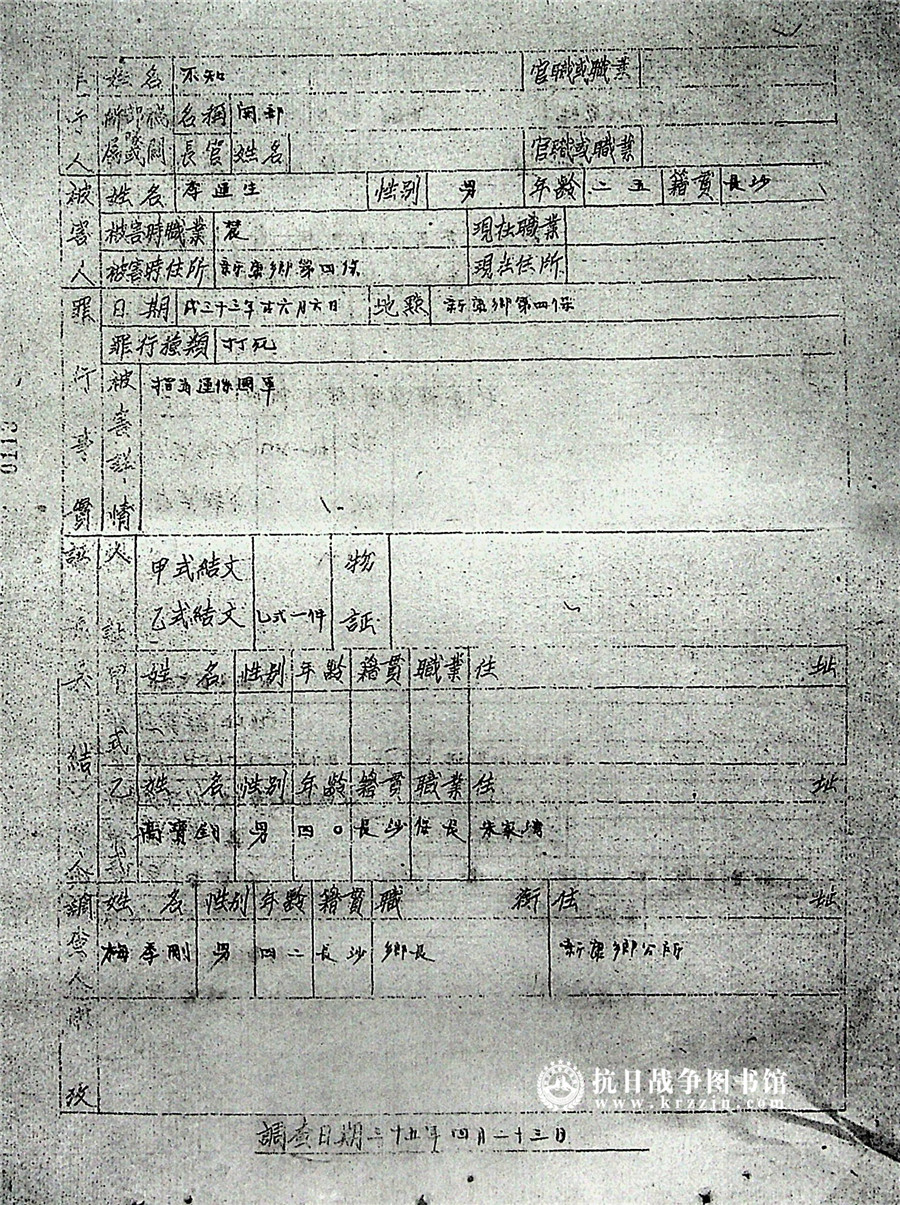 姓名 不知 官職或職業
名稱 關部
長官 姓名 官職或職業
人
被害人
姓名 李 生 性別 男 年齡 二五 籍貫 長沙
被害時職業 農 現在職業
被害時住所 新康鄉第四保 現在住所
罪行事實
日期 三十三年 六月六日 地點 新康鄉第四保
罪行種類 打死
被害詳情 指為 國軍
0113
甲式結文
乙式結文 乙式一件 物証
甲式 姓名 性別 年齡 籍貫 職業 住址
乙式 姓名 性別 年齡 籍貫 職業 住址
高寶 男 四〇 長沙 保長 朱家
調查人 姓名 性別 年齡 籍貫 職銜 住址
梅季剛 男 四二 長沙 鄉長 新康鄉公所
攷
調查日期三十五年四月二十三日
抗日战争图书馆
www.krzzjn.com